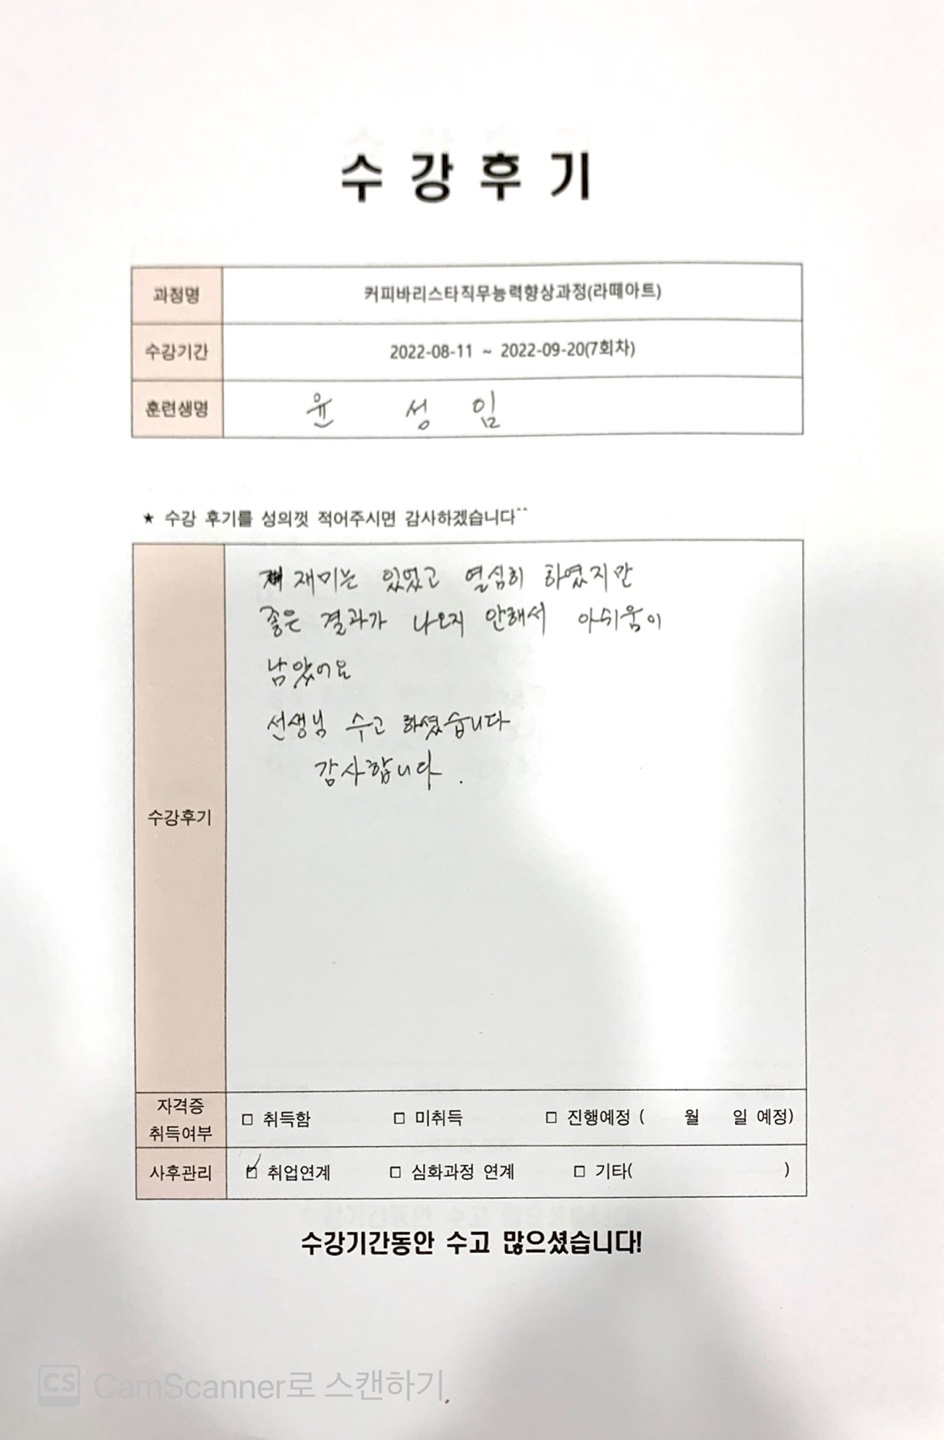 수 강 후 기
과정명 커피바리스타직무능력향상과정(라떼아트)
수강기간 2022-08-11 ~ 2022-09-20(7회차)
훈련생명 윤 성 임
★ 수강 후기를 성의껏 적어주시면 감사하겠습니다^^
재미는 있었고 열심히 하였지만
좋은 결과가 나오지 안해서 아쉬움이
남았어요
선생님 수고 하셨습니다
감사합니다.
수강후기
자격증
취득여부 □ 취득함 □ 미취득 □ 진행예정 ( 월 일 예정)
사후관리 ☑ 취업연계 □ 심화과정 연계 □ 기타( )
수강기간동안 수고 많으셨습니다!
CS CamScanner로 스캔하기